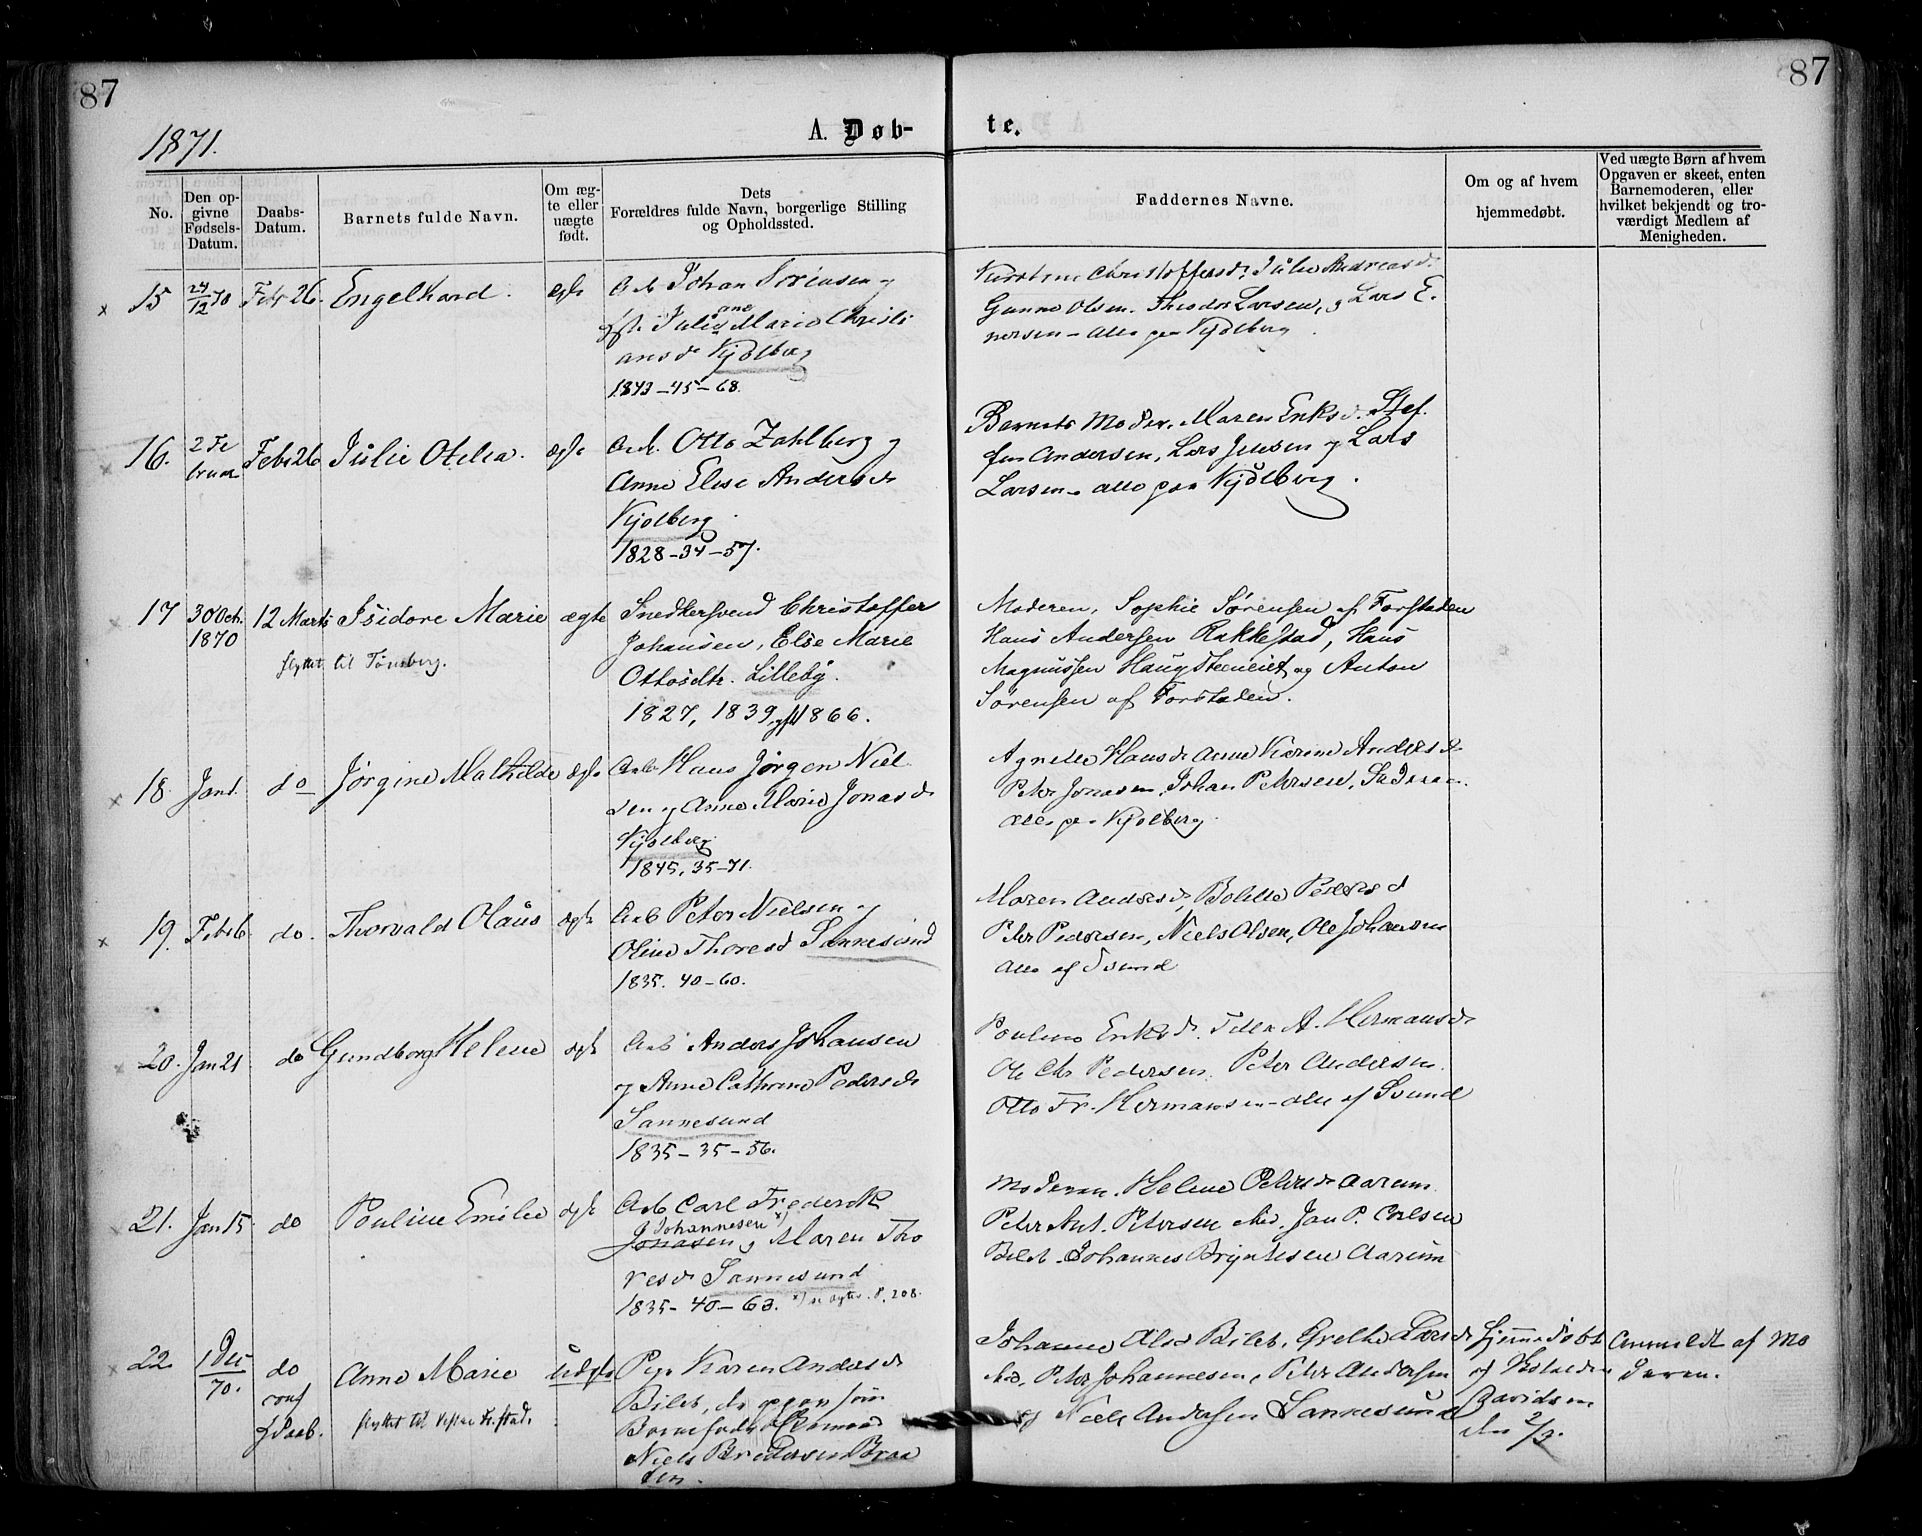 87
87
1871.
A. Døb-
te.
No.
Den op-
givne
Fødsels-
Datum.
Daabs-
Datum.
Barnets fulde Navn.
Om æg-
te eller
uægte
født.
Dets
Forældres fulde Navn, borgerlige Stilling
og Opholdssted.
Faddernes Navne.
Om og af hvem
hjemmedøbt.
Ved uægte Børn af hvem
Opgaven er skeet, enten
Barnemoderen, eller
hvilket bekjendt og tro-
værdigt Medlem af
Menigheden.
15 24/12 70 Febr 26. Engelhard. ægte
Arb Johan Sørensen og
Julie Marie Christi
ane
ansd Kjølberg
1843-45-68.
Christoffersd. Julie Andreasd.
Gunne Olsen. Theodor Larsen, og Lars E.
nersen - alle paa Kjølberg
16. 2 Fe
bruar Febr 26 Julie Otelia. ægte
Arb. Otto Zahlberg og
Anne Elise Andersd
Kjølberg
1828-34-57.
Barnets Moder, Maren Eriksd. Stef.
fen Andersen, Lars Jensen og Lars
Larsen - alle paa Kjølberg.
17 30 Oct.
1870 12 Marts Isidore Marie ægte
flyttet til Tønsberg.
Snedkersvend Christoffer
Johansen, Else Marie
Ottosdtr. Lilleby.
1827, 1839, gft 1866.
Moderen, Sophie Sørensen af Forstaden
Hans Andersen Rakkestad, Hans
Magnussen Haugsteneiet og Anton
Sørensen af Forstaden.
18. Jan 1. do Jørgine Mathilde ægte
Arb Hans Jørgen Niel
sen og Anne Marie Jonasd
Kjølberg
1845, 35-71.
Agnethe Hansd Anne Karine Andersd
Peter Jonassen, Johan Petersen,
alle paa Kjølberg.
19. Febr 6. do. Thorvald Olaus ægte
Arb Peter Nielsen og
Oline Thoresd Sannesund
1835. 40-60.
Maren Andersd, Bolette Pedersd
Peter Pedersen, Niels Olsen, Ole Johansen
alle af Ssund
20. Jan 21 do Gundborg Helene ægte
Arb Anders Johansen
og Anne Cathrine Pedersd
Sannesund
1835-35-56.
Pouline Eriksd. A. Hermansd
Ole Chr Pedersen. Peter Andersen.
Otto Fr. Hermansen - alle af Ssund
21. Jan 15. do Pouline Emilie ægte
Arb Carl Frederik
Johannesen x)
Jonasen og Maren Tho
resd Sannesund
1835-40-63. x) se Ægtev. P. 208.
Moderen. Helene Petersd Aarum.
Peter Ant. Petersen ibid, Jan P. Carlsen
Bilet. Johannes Bryntesen Aarum
22. 1 Dec
70. do
conf
Daab. Anne Marie uægte
flyttet til Vestre Fr.stad.
Pige Karen Andersd
Bilet, dr opgav som
Barnefader
Niels Pedersen Braa
ten.
Johanne Olsd Bilet, Grethe Larsd
ibid, Peter Johannesen, Peter Andersen
og Niels Andersen Sannesund
hjemmedøbt
af
Davidsen
den 2/3.
Anmeldt af Mo
deren.